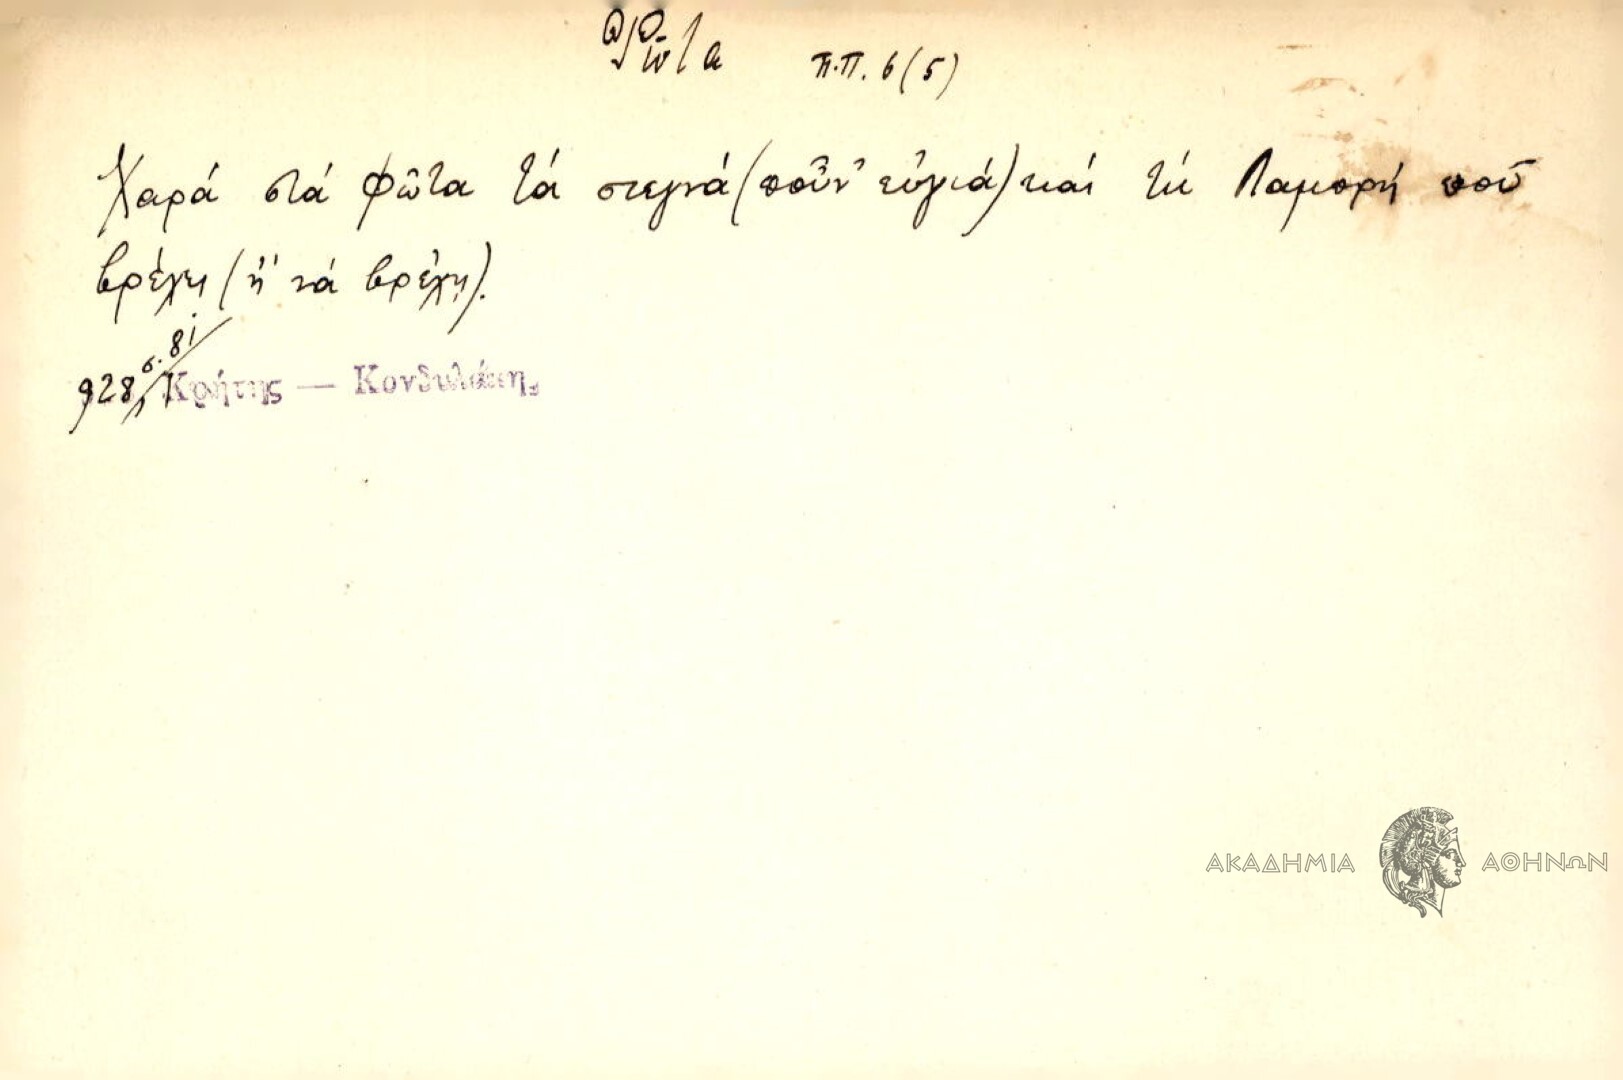 Φῶτα Π.Π. 6 (5)
Χαρά στά Φῶτα τά στεγνά (ποὖν' εὐγιά) καί τή Λαμπρή ποῦ
βρέχει (ἤ νά βρέχῃ).
928, σ. 81 Κρήτης — Κονδυλάκης
ΑΚΑΔΗΜΙΑ ΑΘΗΝΩΝ